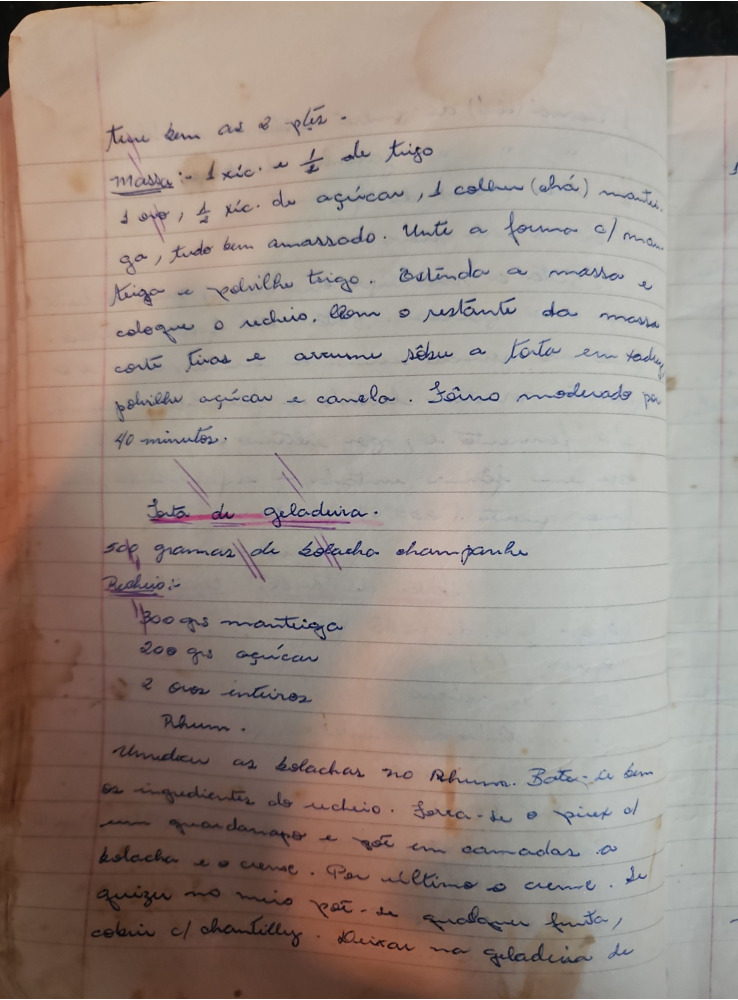 bem as 2 ptes.
Massa:- 1 xíc. e 1/2 de trigo
1 ovo, 1/2 xíc. de açúcar, 1 colher (chá) mantei-
ga, tudo bem amassado. Unte a forma c/ man
teiga e polvilhe trigo. Estenda a massa e
coloque o recheio. Com o restante da massa
corte tiras e arrume sôbre a torta em xadrez,
polvilhe açúcar e canela. Fôrno moderado por
40 minutos.
Torta de geladeira.
500 gramas de bolacha champanhe
Recheio:-
300 grs manteiga
200 grs açúcar
2 ovos inteiros
Rhum.
Umedecer as bolachas no Rhum. Bate-se bem
os ingredientes do recheio. Forra-se o pirex c/
um guardanapo e põe em camadas a
bolacha e o creme. Por último o creme. Se
quizer no meio põe-se qualquer fruta,
cobrir c/ chantilly. Deixar na geladeira de